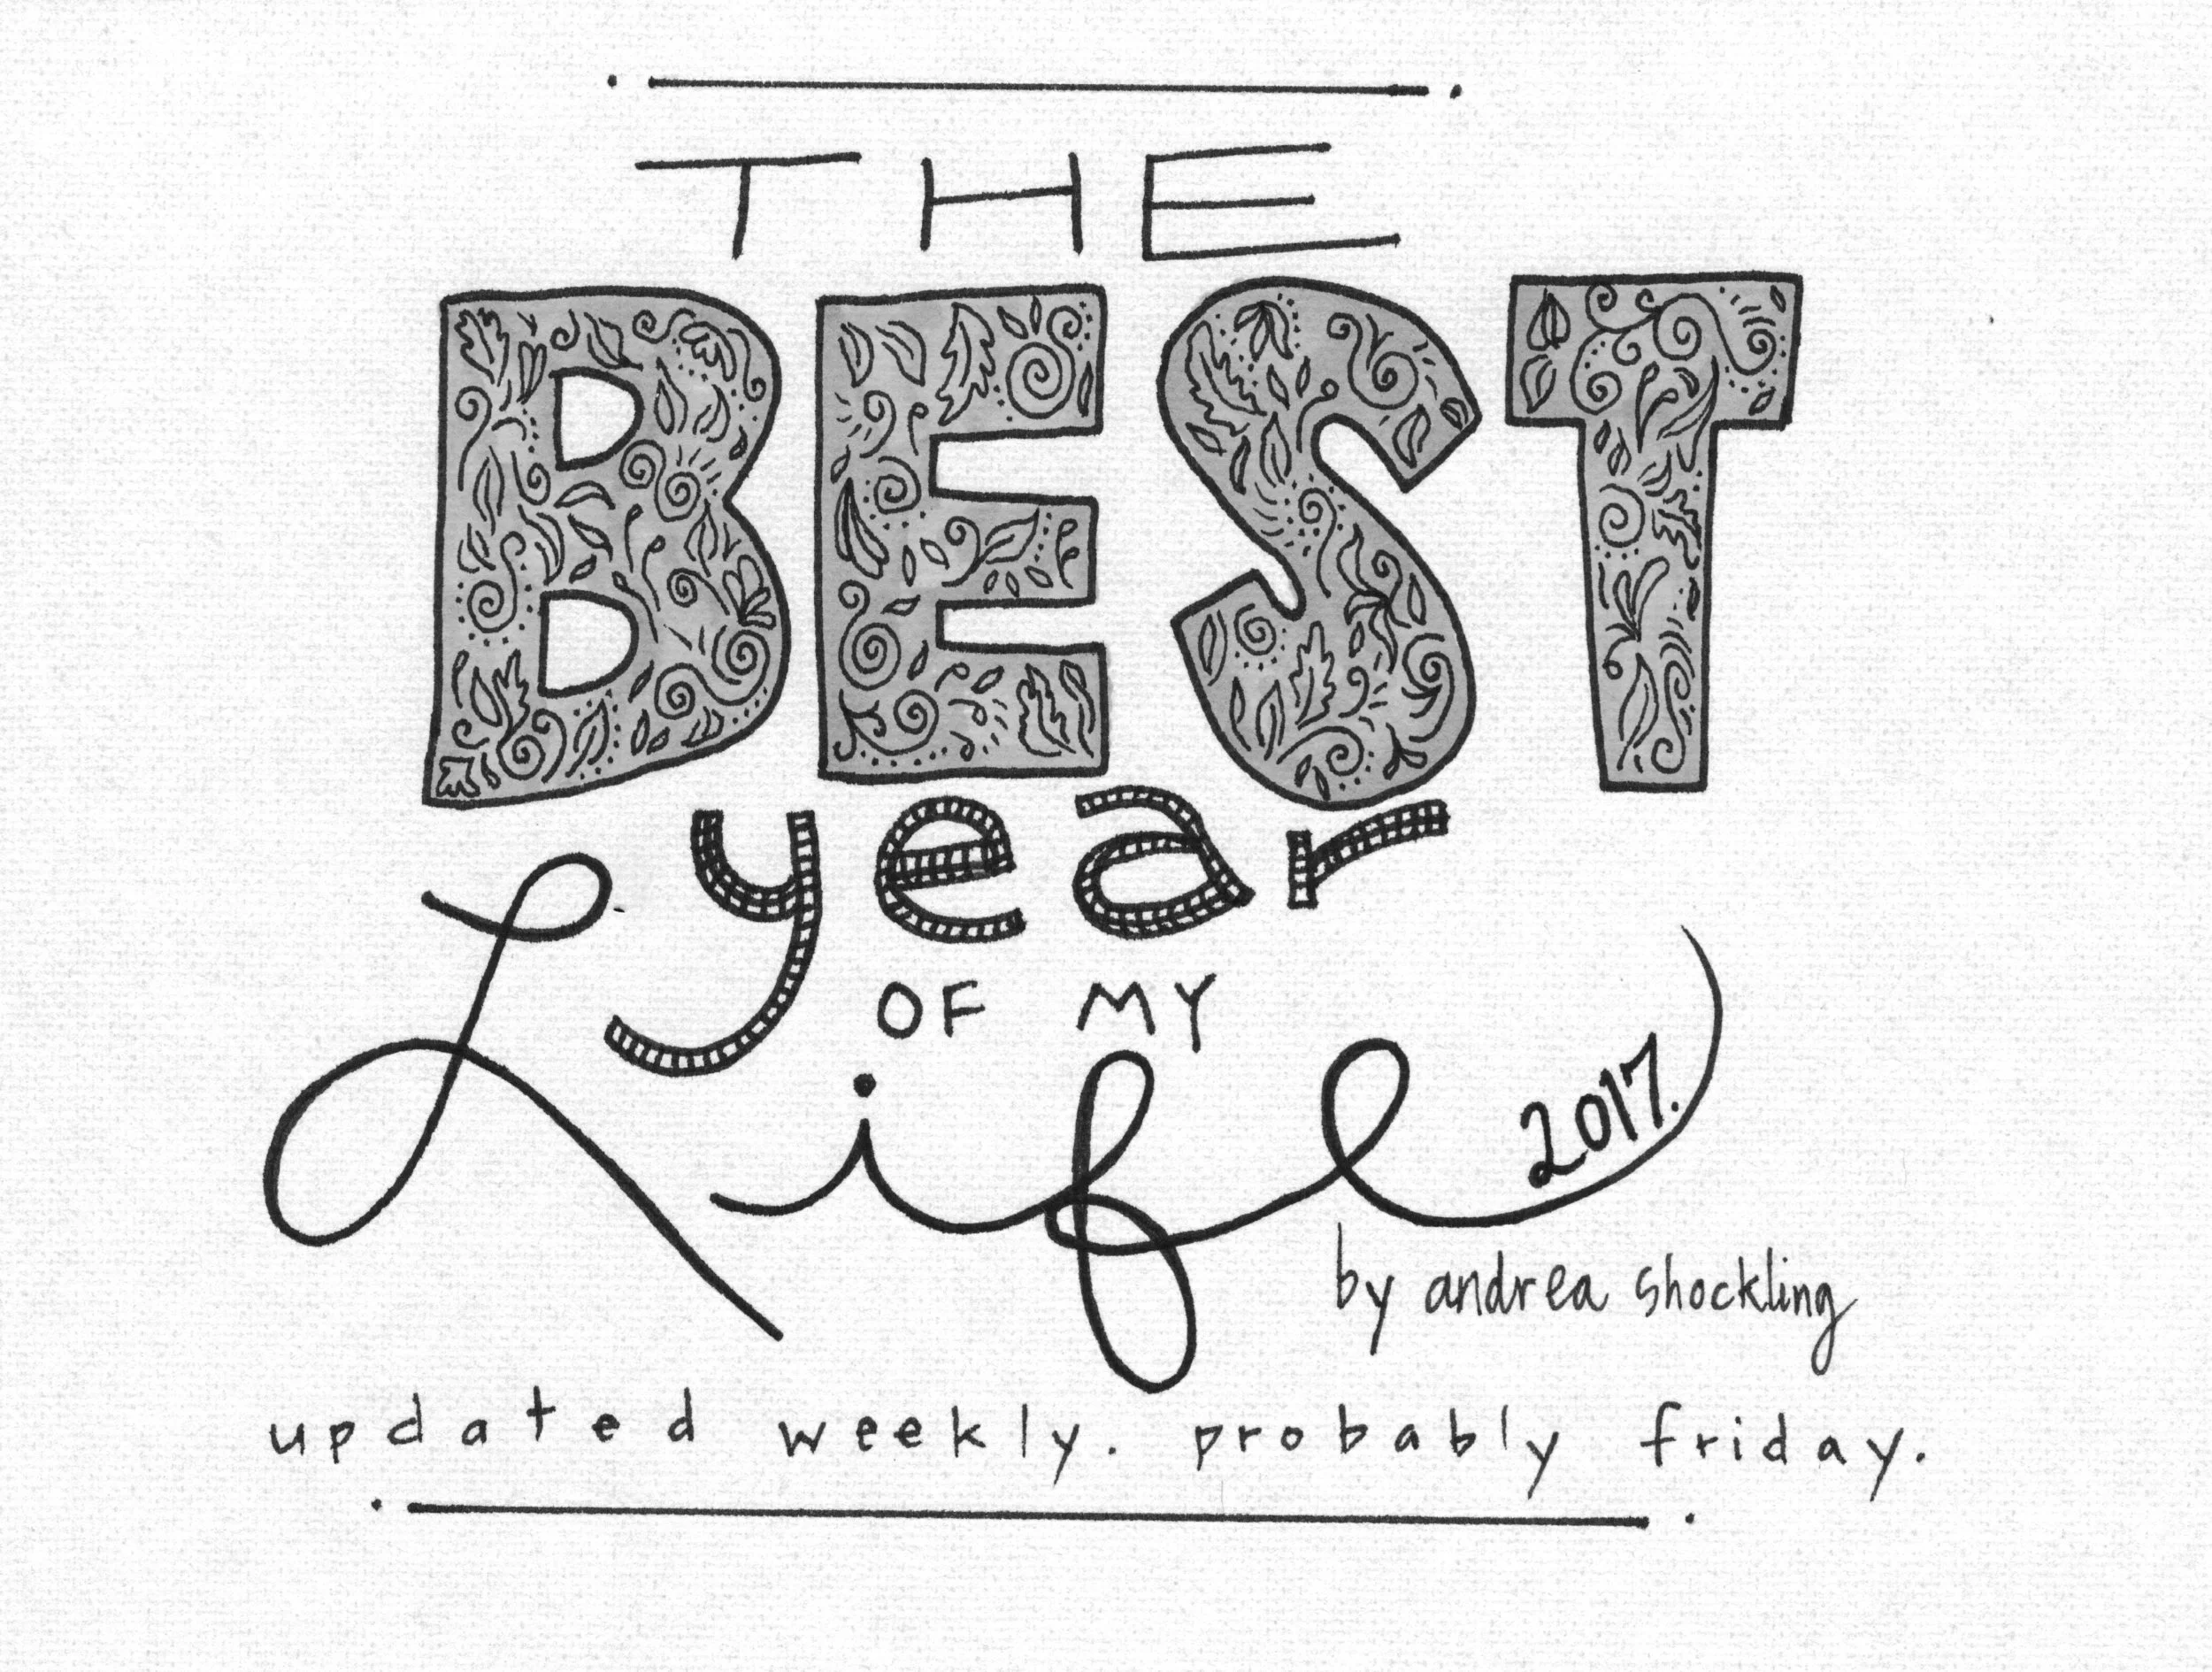 THE
BEST
year
OF MY
Life
2017.
by andrea shockling
updated weekly. probably friday.